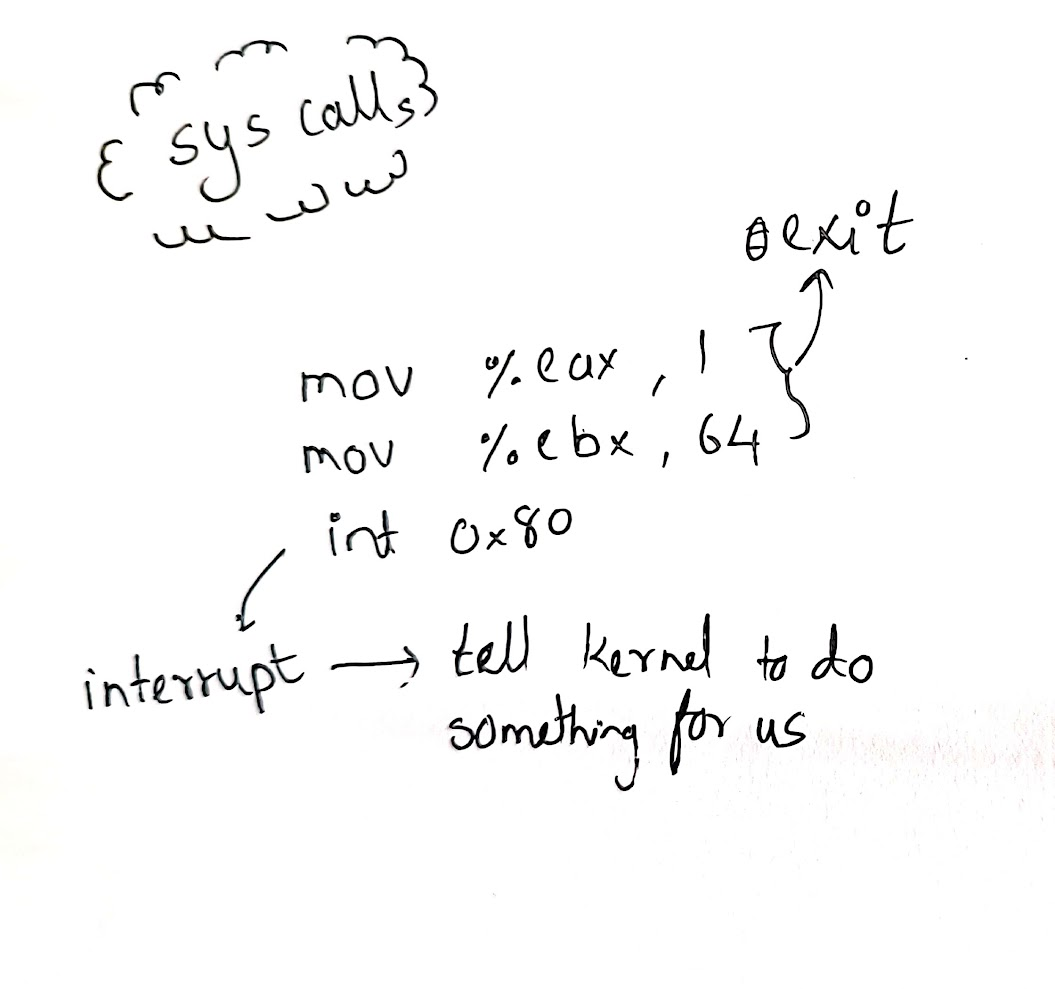 sys calls
exit
mov %eax, 1
mov %ebx, 64
int 0x80
interrupt → tell kernel to do
something for us